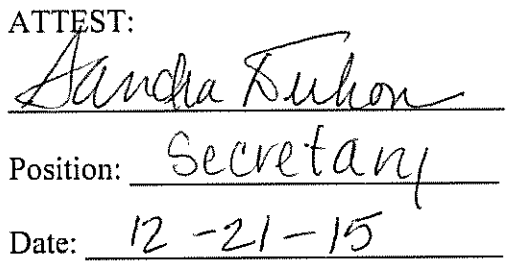 ATTEST:
Sandra
Position: Secretary
Date: 12-21-15